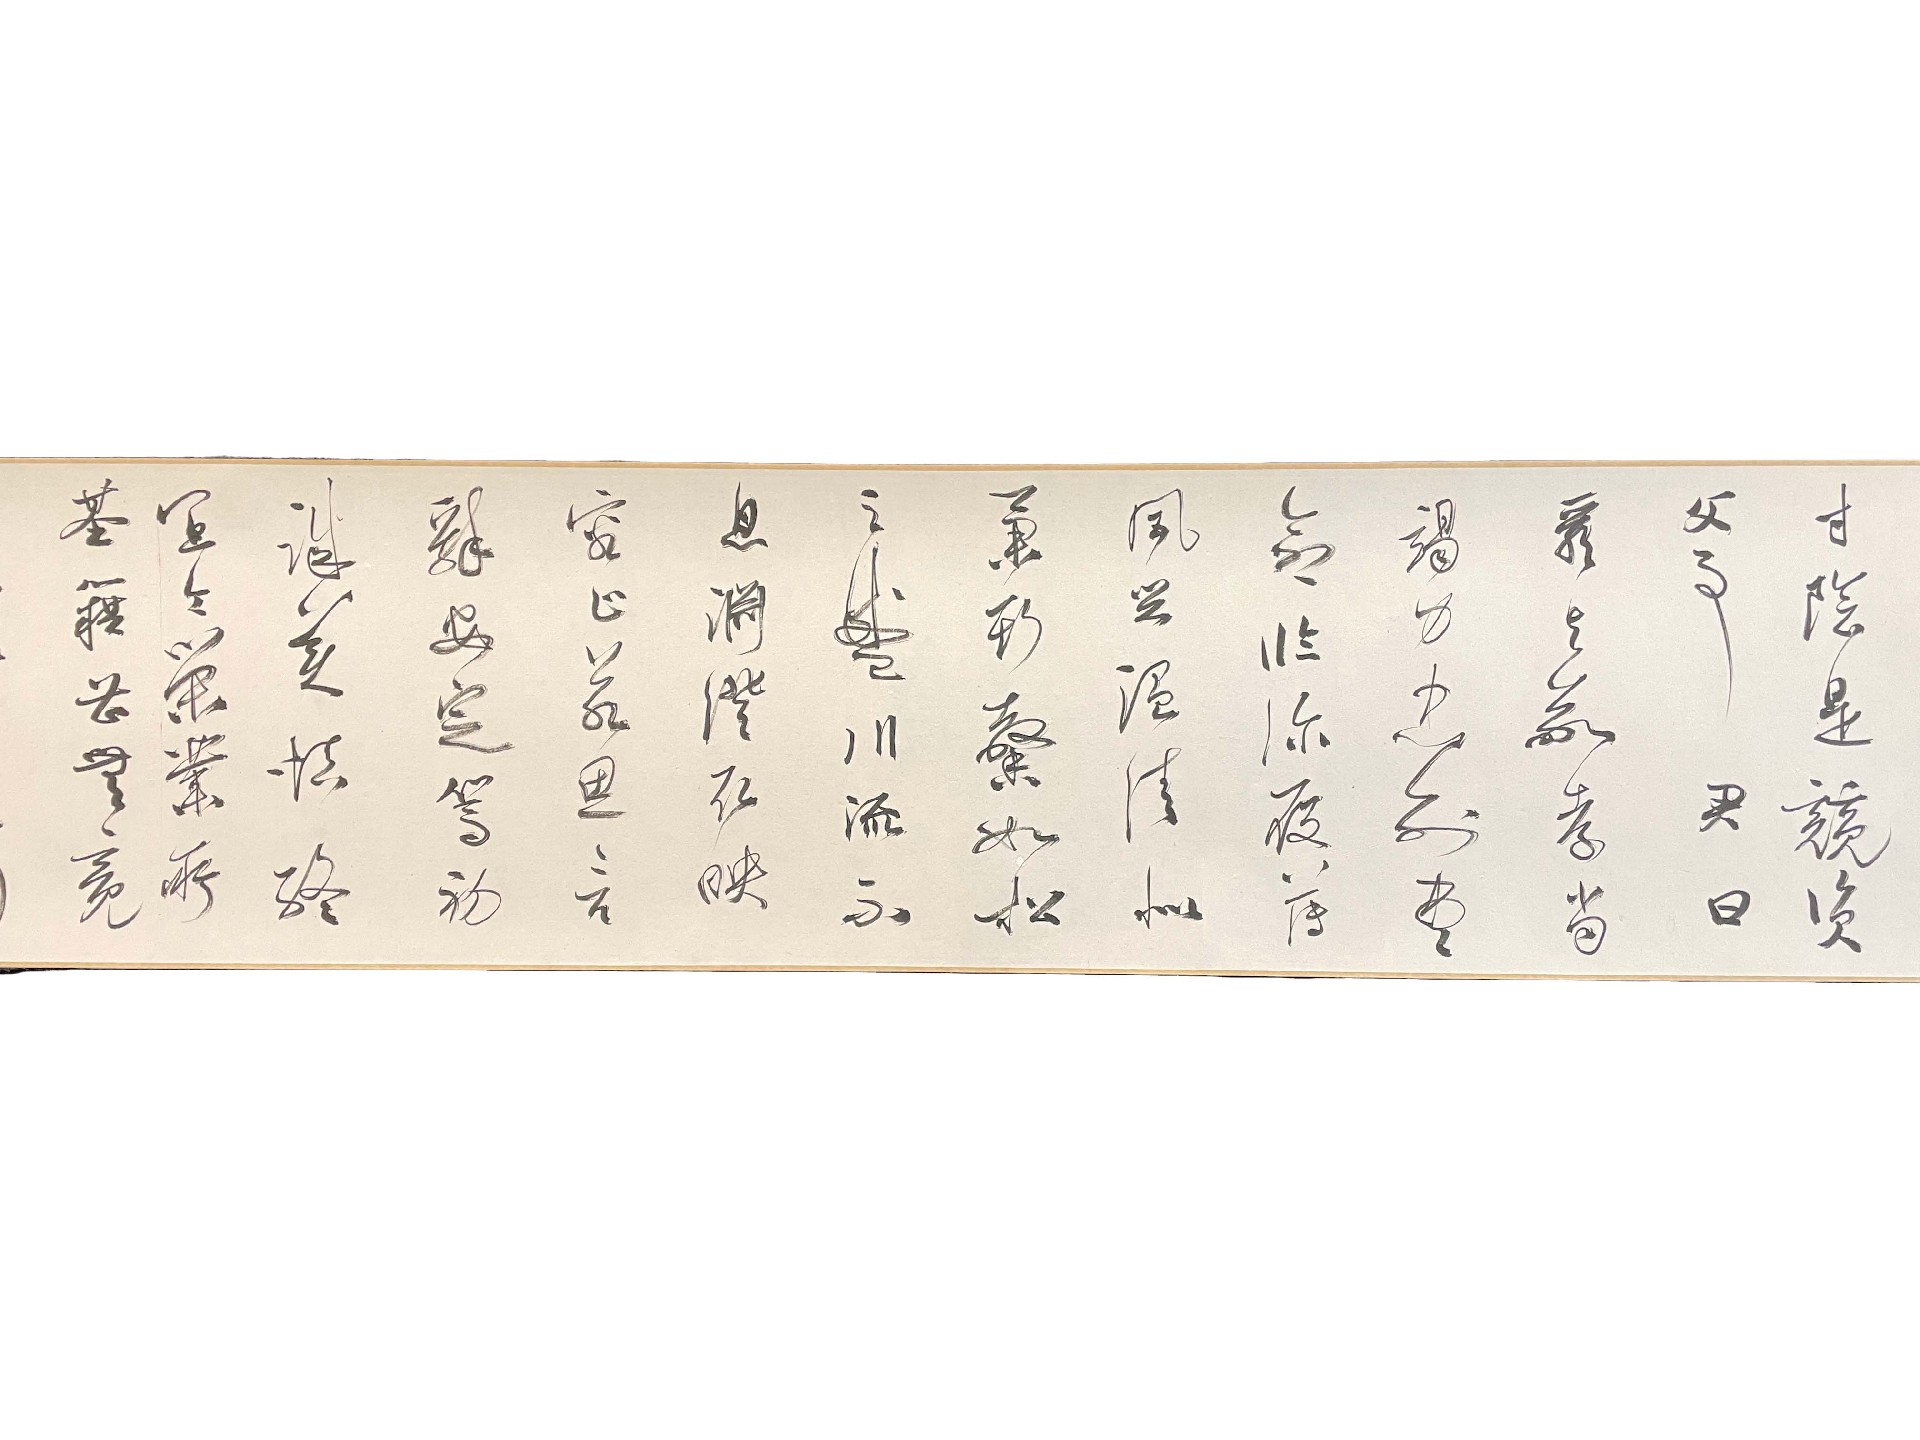 寸陰是競資
父事君曰
嚴与敬孝當
竭力忠則盡
命臨深履薄
夙興溫清似
蘭斯馨如松
之盛川流不
息淵澄取映
容止若思言
辭安定篤初
誠美慎終
宜令榮業所
基籍甚無竟